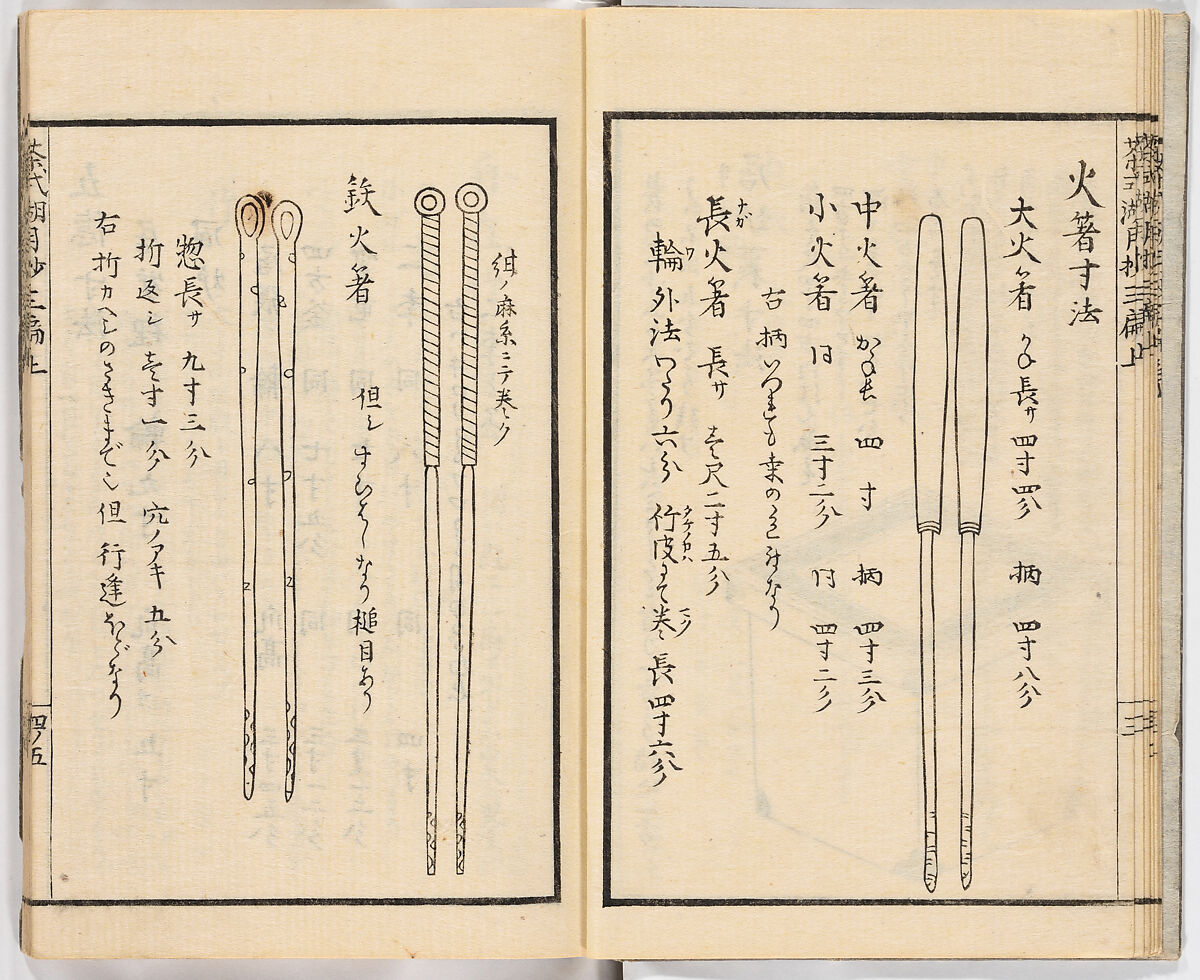 火箸寸法
大火箸 かね長サ四寸四分 柄 四寸八分
中火箸 かね長 四寸 柄 四寸三分
小火箸 同 三寸二分 同 四寸二分
右柄いつれも桑の なり
長火箸 長サ 壱尺二寸五分
ナガ
輪外法わたり六分 竹皮にて巻 長四寸六分
ワ
タケノカハ
紺ノ麻糸ニテ巻ク
鉄火箸 但シ なり槌目あり
惣長サ 九寸三分
折返シ 壱寸一分 穴ノアキ 五分
右折カヘシのさきまで 但 行逢ほどなり
茶式湖月抄三編上
茶式湖月抄三編上
四ノ五